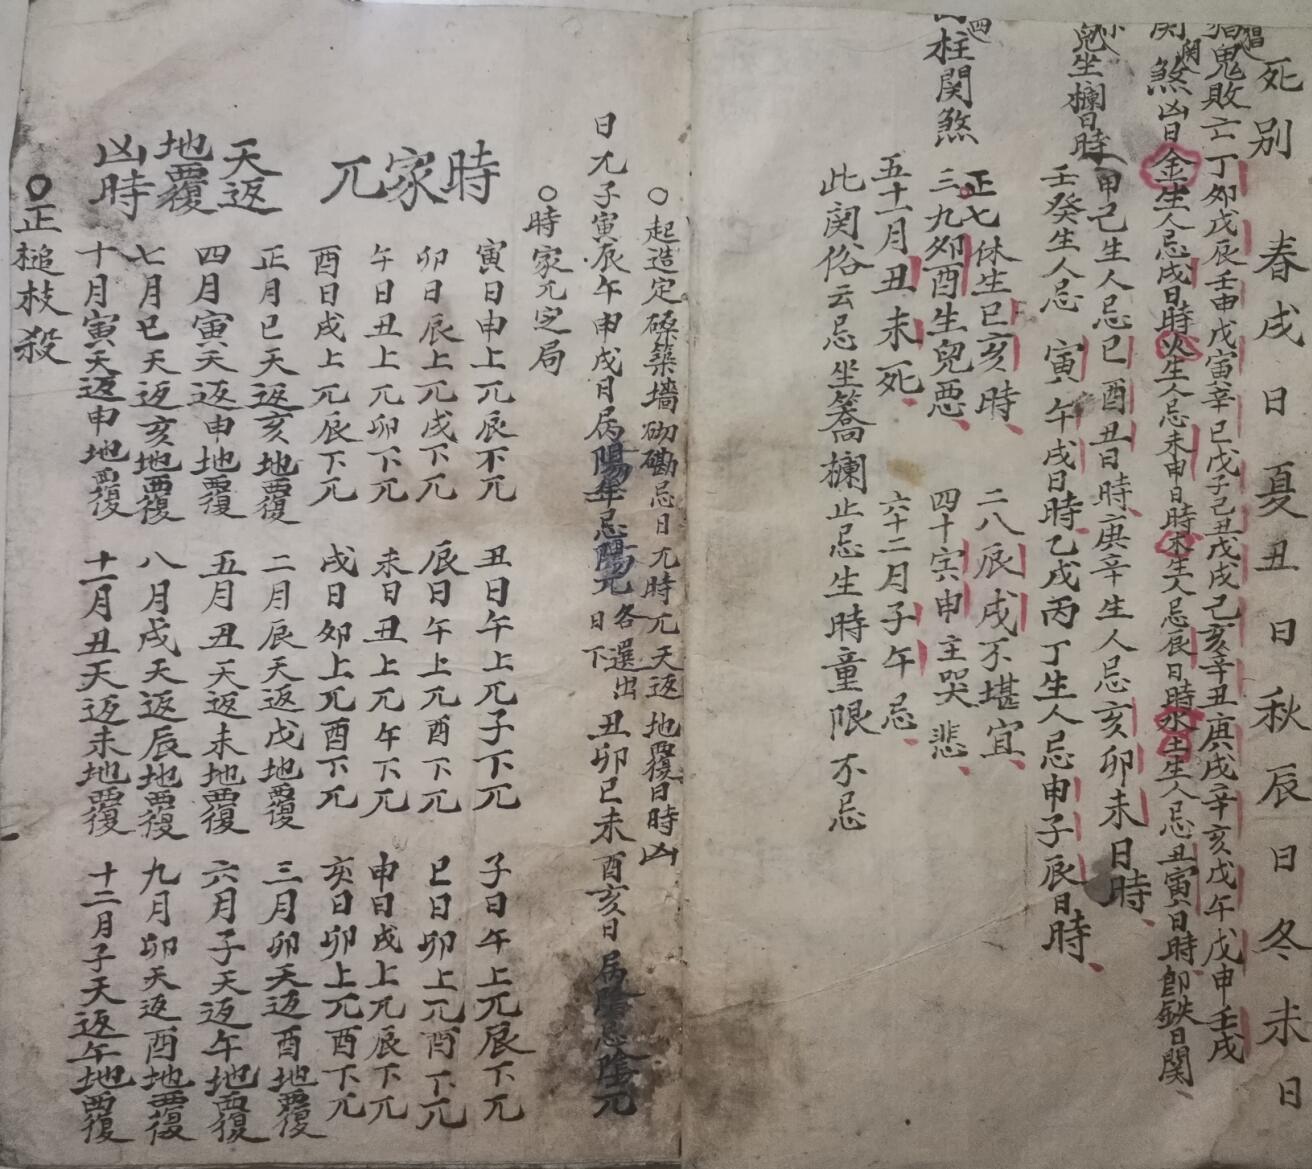 死别 春戌日夏丑日秋辰日冬未日
猖鬼敗亡 丁卯戊辰壬申戊寅辛巳戊子己丑戊戌己亥辛丑庚戌辛亥戊午戊申壬戌
関煞凶日金生人忌戌日時火生人忌未申日時木生人忌辰日時水土生人忌丑寅日時即鉄日関
小兒坐欄日時 甲己生人忌巳酉丑日時庚辛生人忌亥卯未日時
壬癸生人忌寅午戌日時乙戊丙丁生人忌申子辰日時
四柱関煞
正七休生巳亥時 二八辰戌不堪宜
三九卯酉生兒悪 四十寅申主哭悲
五十一月丑未死 六十二月子午忌
此関俗云忌坐蕎欄止忌生時童限不忌
○起造定磉築墻砌磡忌日兀時兀天返地覆日時凶
日兀子寅辰午申戌月属陽年忌陽兀各選出日下丑卯巳未酉亥日属陰忌陰兀
○時家兀定局
時家兀
寅日申上兀辰下兀 丑日午上兀子下兀 子日午上兀辰下兀
卯日辰上兀戌下兀 辰日午上兀酉下兀 巳日卯上兀酉下兀
午日丑上兀卯下兀 未日丑上兀午下兀 申日戌上兀辰下兀
酉日戌上兀辰下兀 戌日卯上兀酉下兀 亥日卯上兀酉下兀
天返地覆凶時
正月巳天返亥地覆 二月辰天返戌地覆 三月卯天返酉地覆
四月寅天返申地覆 五月丑天返未地覆 六月子天返午地覆
七月巳天返亥地覆 八月戌天返辰地覆 九月卯天返酉地覆
十月寅天返申地覆 十一月丑天返未地覆 十二月子天返午地覆
○正槌枝殺